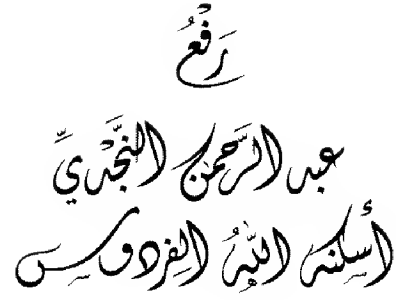 رَفْعُ
عبد الرَّحمن النَّجْديِّ
أسكنه اللهُ الفِردوس